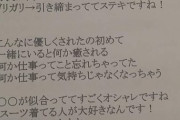 リガリ→引き締まっててステキですね！
こんなに優しくされたの初めて
一緒にいると何か癒される
何か仕事ってこと忘れちゃってた
何か仕事って気持ちじゃなくなっちゃう
〇〇が似合っててすごくオシャレですね
スーツ着てる人が大好きなんです！